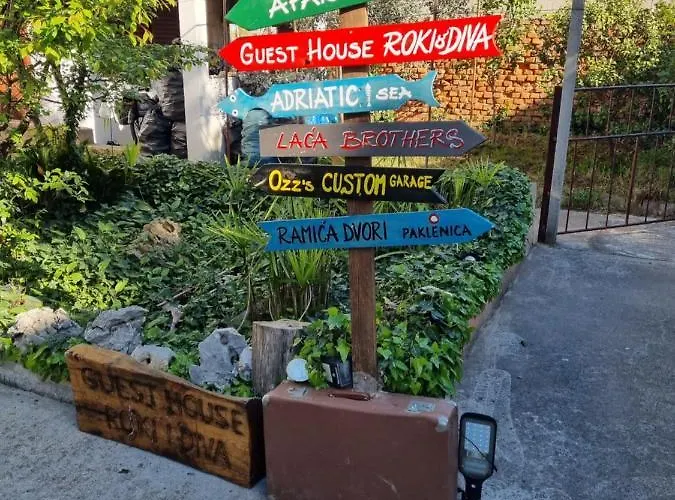 GUEST HOUSE ROKI&DIVA
ADRIATIC SEA
LAĆA BROTHERS
OZZ'S CUSTOM GARAGE
RAMIĆA DVORI PAKLENICA
GUEST HOUSE
ROKI I DIVA